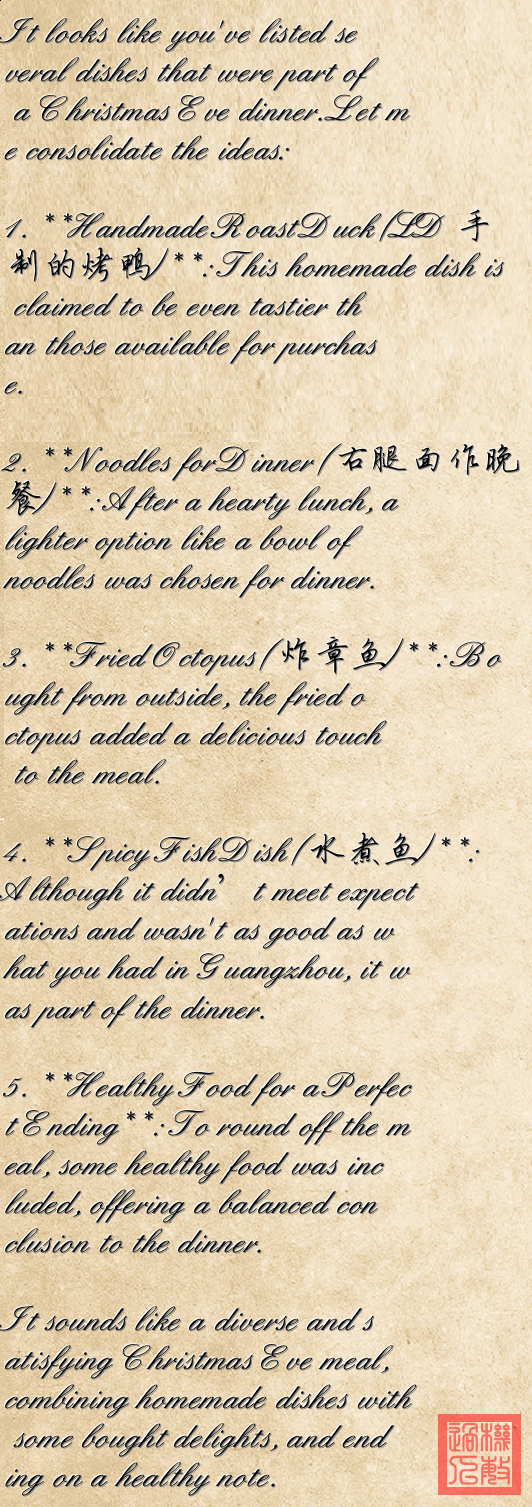 It looks like you've listed se
veral dishes that were part of
a Christmas Eve dinner. Let m
e consolidate the ideas:
1. **Handmade Roast Duck (LD 手
制的烤鸭)**: This homemade dish is
claimed to be even tastier th
an those available for purchas
e.
2. **Noodles for Dinner (右腿面作晚
餐)**: After a hearty lunch, a
lighter option like a bowl of
noodles was chosen for dinner.
3. **Fried Octopus (炸章鱼)**: Bo
ught from outside, the fried o
ctopus added a delicious touch
to the meal.
4. **Spicy Fish Dish (水煮鱼)**:
Although it didn’t meet expect
ations and wasn't as good as w
hat you had in Guangzhou, it w
as part of the dinner.
5. **Healthy Food for a Perfec
t Ending**: To round off the m
eal, some healthy food was inc
luded, offering a balanced con
clusion to the dinner.
It sounds like a diverse and s
atisfying Christmas Eve meal,
combining homemade dishes with
some bought delights, and end
ing on a healthy note.